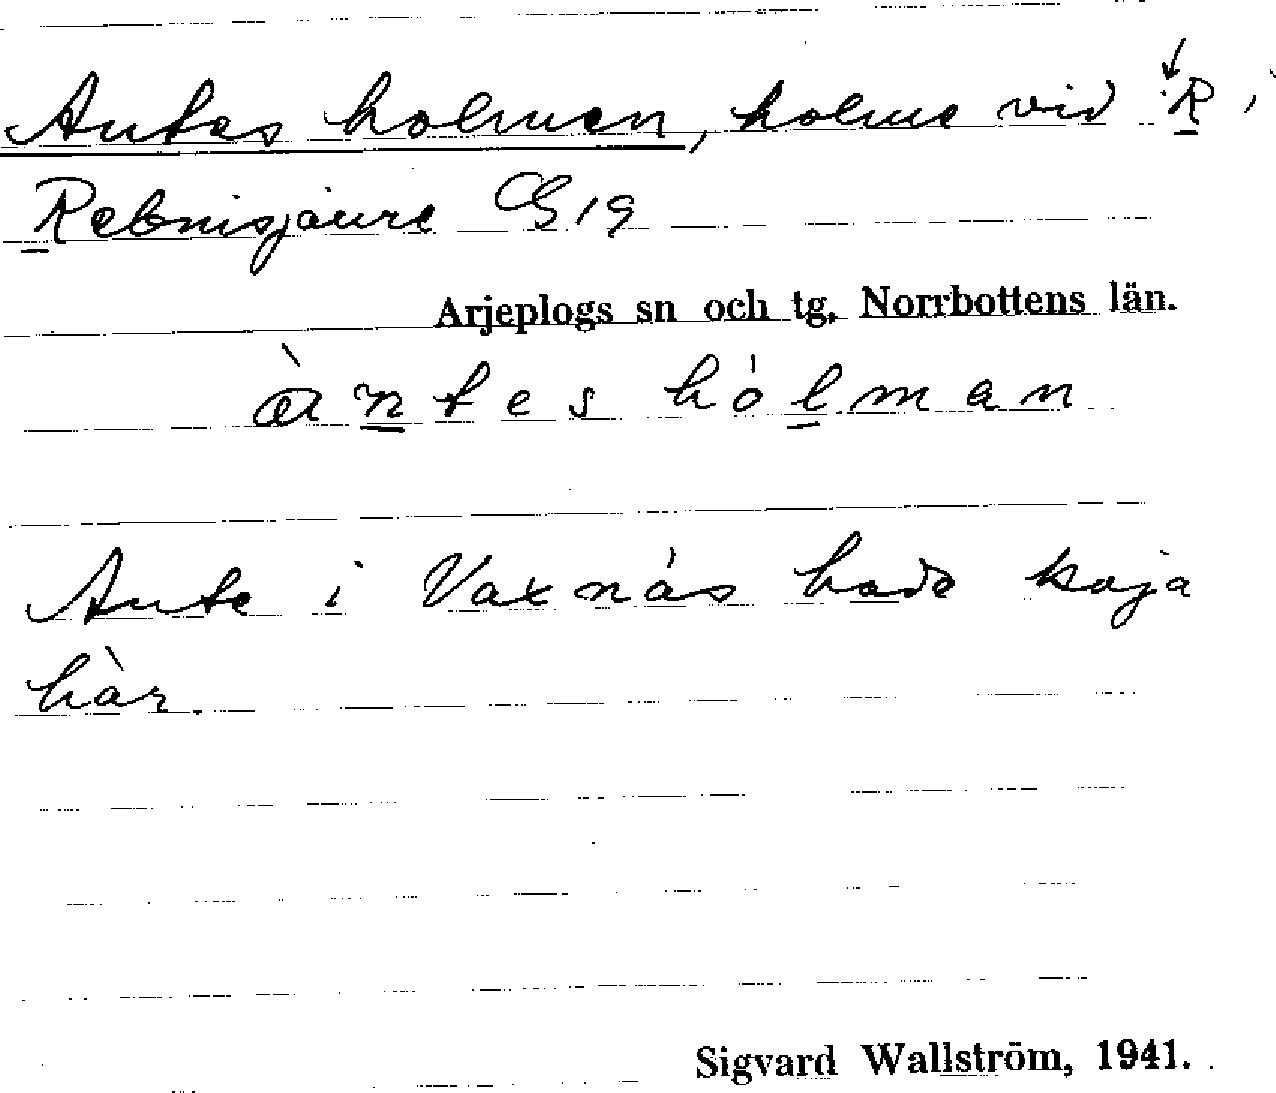 Antes holmen, holme vid R i
Rebnisjaure G19
Arjeplogs sn och tg. Norrbottens län.
àntes hólman
Ante i Vaxnäs hade koja
här.
Sigvard Wallström, 1941.